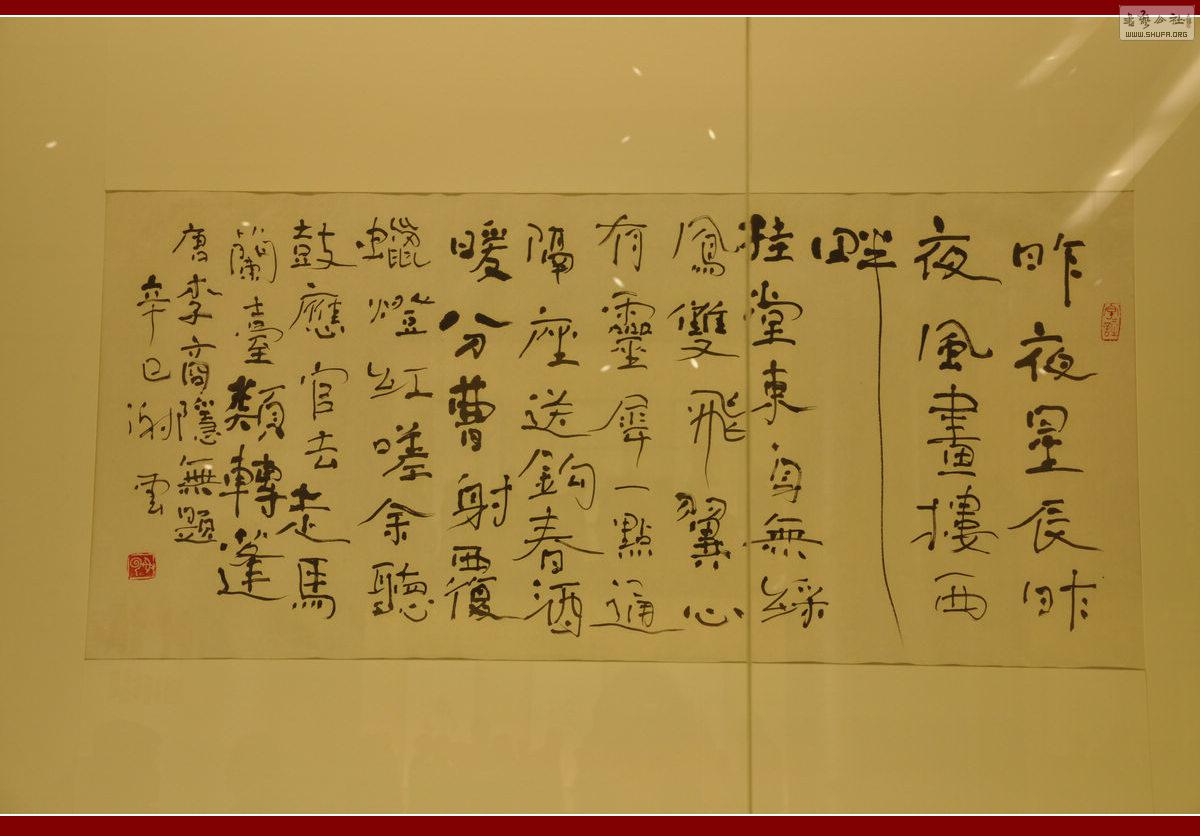 昨夜星辰昨
夜風畫樓西
畔
桂堂東身無綵
鳳雙飛翼心
有靈犀一點通
隔座送鉤春酒
暖分曹射覆
蠟燈紅嗟余聽
鼓應官去走馬
蘭臺類轉蓬
唐李商隱無題
辛巳謝雲
書藝公社
WWW.SHUFA.ORG